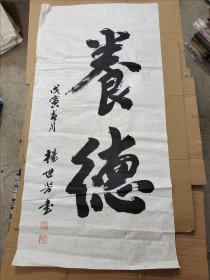 養德
戊寅春月
楊世芳書